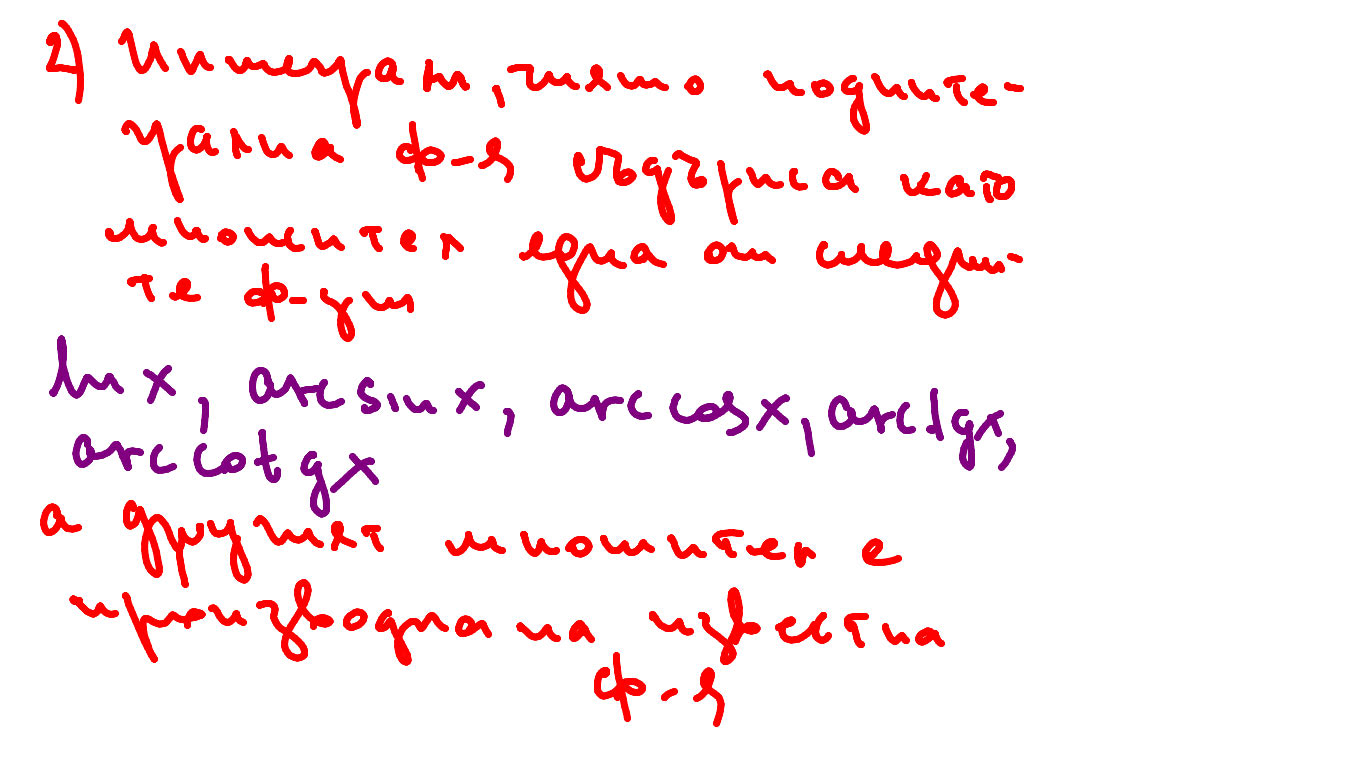 2) Интеграл, чиято подинте-
грална ф-я съдържа като
множител една от следни-
те ф-ции
ln x, arcsin x, arccosx, arctgx,
arccotgx
а другият множител е
производна на известна
ф-я